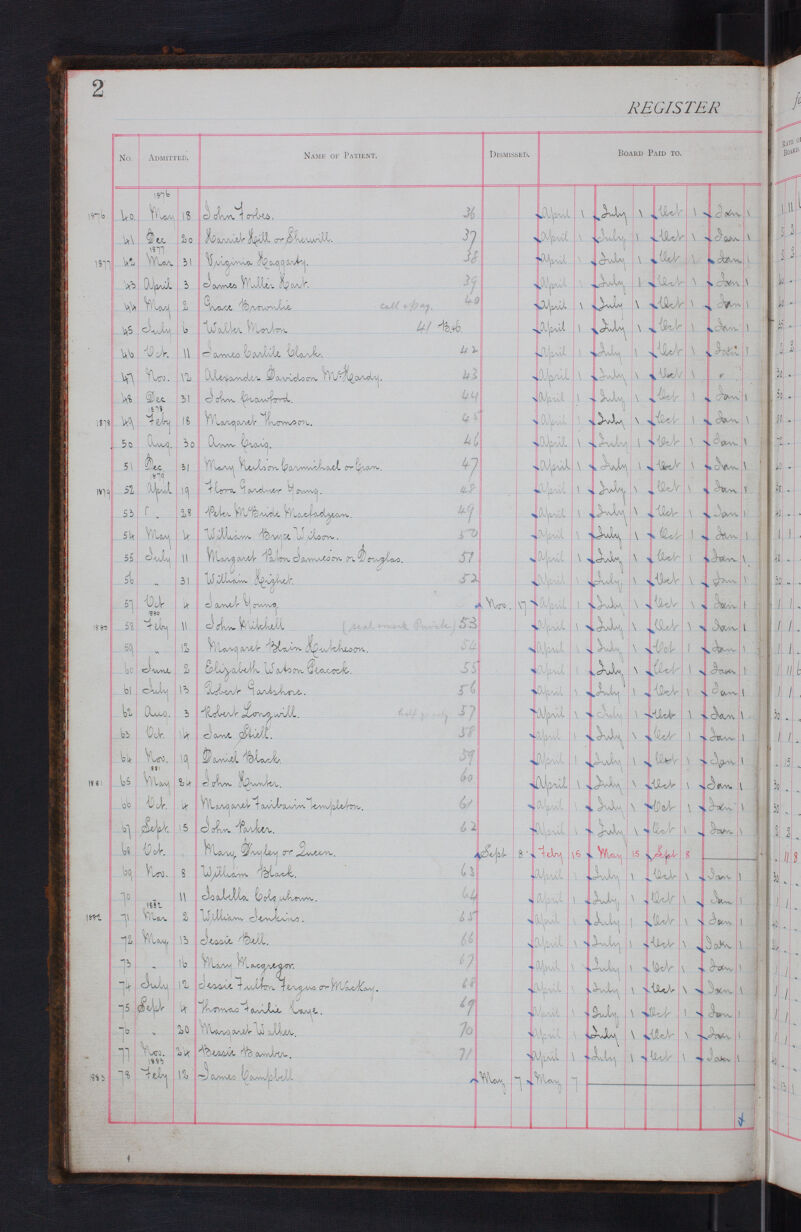 2
REGISTER
No. ADMITTED. NAME OF PATIENT. DISMISSED. BOARD PAID TO.
1876
1876 40 May 18 John Forbes. 36 April 1 July 1 Oct 1 Jan 1
41 Dec 20 Harriet Hill or Sherwill. 37 April 1 July 1 Oct 1 Jan 1
1877
1877 42 Mar 31 Virginia Haggarty. 38 April 1 July 1 Oct 1 Jan 1
43 April 3 James Miller Hart. 39 April 1 July 1 Oct 1 Jan 1
44 May 2 Grace Brownlie 40 April 1 July 1 Oct 1 Jan 1
45 July 6 Walter Morton 41 April 1 July 1 Oct 1 Jan 1
46 Oct. 11 James Carlile Clark. 42 April 1 July 1 Oct 1 1
47 Nov. 12 Alexander Davidson McHardy. 43 April 1 July 1 Oct 1 " 1
48 Dec 31 John Crawford. 44 April 1 July 1 Oct 1 Jan 1
1878
1878 49 Feby 18 Margaret Thomson. 45 April 1 July 1 Oct 1 Jan 1
50 Aug. 30 Ann Craig. 46 April 1 July 1 Oct 1 Jan 1
51 Dec 31 Mary Neilson Carmichael or 47 April 1 July 1 Oct 1 Jan 1
1879
1879 52 April 19 Flora Gardner Young. 48 April 1 July 1 Oct 1 Jan 1
53 " 28 Peter McBride Macfadyean. 49 April 1 July 1 Oct 1 Jan 1
54 May 4 William Bruce Wilson. 50 April 1 July 1 Oct 1 Jan 1
55 July 11 Margaret Paton Jamieson or Douglas. 51 April 1 July 1 Oct 1 Jan 1
56 " 31 William Highet. 52 April 1 July 1 Oct 1 Jan 1
57 Oct 4 Janet Young Nov. 17 April 1 July 1 Oct 1 Jan 1
1880
1880 58 Feby 11 John Mitchell 53 April 1 July 1 Oct 1 Jan 1
59 " 12 Margaret Blain Hutcheson. 54 April 1 July 1 Oct 1 Jan 1
60 June 2 Elizabeth Watson Peacock. 55 April 1 July 1 Oct 1 Jan 1
61 July 13 Robert Gartshore. 56 April 1 July 1 Oct 1 Jan 1
62 Aug. 3 Robert Longwill. 57 April 1 July 1 Oct 1 Jan 1
63 Oct. 14 Jane Stiell. 58 April 1 July 1 Oct 1 Jan 1
64 Nov. 19 Daniel Black. 59 April 1 July 1 Oct 1 Jan 1
1881
1881 65 May 24 John Hunter. 60 April 1 July 1 Oct 1 Jan 1
66 Oct. 4 Margaret Fairbairn Templeton. 61 April 1 July 1 Oct 1 Jan 1
67 Sept. 15 John Parker. 62 April 1 July 1 Oct 1 Jan 1
68 Oct. Mary, Dryley or Queen. Sept 8 Feby 15 May 15 Sept 8
69 Nov. 8 William Black. 63 April 1 July 1 Oct 1 Jan 1
70 11 Isabella Colquhoun. 64 April 1 July 1 Oct 1 Jan 1
1882
1882 71 Mar 2 William Jenkins. 65 April 1 July 1 Oct 1 Jan 1
72 May 13 Jessie Bell. 66 April 1 July 1 Oct 1 Jan 1
73 " 16 Mary Macgregor. 67 April 1 July 1 Oct 1 Jan 1
74 July 12 Jessie Fulton Fergus or MacKay. 68 April 1 July 1 Oct 1 Jan 1
75 Sept 4 Thomas Fairlie 69 April 1 July 1 Oct 1 Jan 1
76 " 20 Margaret Walker. 70 April 1 July 1 Oct 1 Jan 1
77 Nov. 24 Bessie Bamber. 71 April 1 July 1 Oct 1 Jan 1
1883
1883 78 Feby 12 James Campbell May 7 May 7